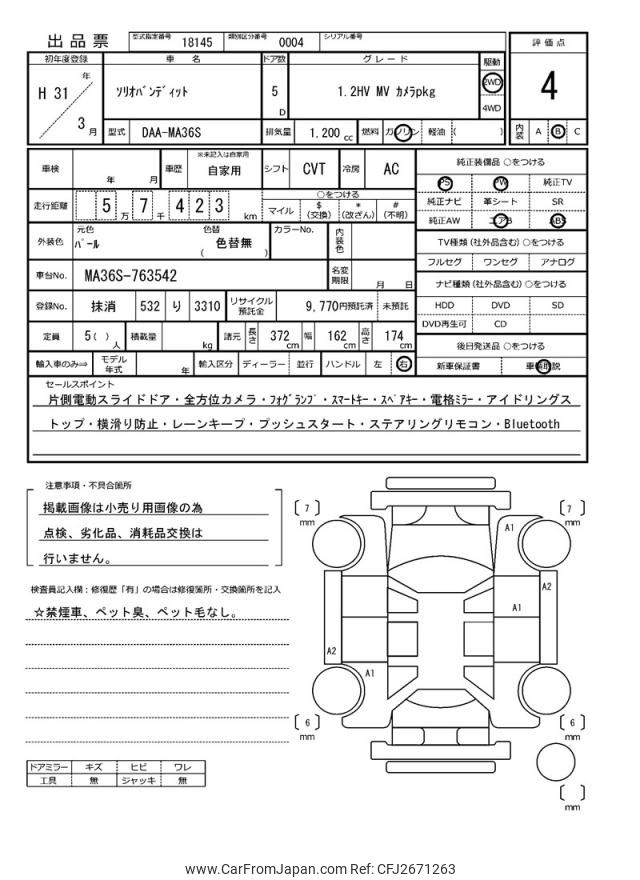 出品票 型式指定番号 18145 類別区分番号 0004 シリアル番号
評価点
4
内装 A B C
初年度登録 車名 ドア数 グレード 駆動
H 31 年 3 月 ソリオバンディット 5 D 1.2HV MV カメラpkg 2WD 4WD
型式 DAA-MA36S 排気量 1,200 cc 燃料 ガソリン 軽油 ( )
車検 年 月 車歴 ※未記入は自家用 自家用 シフト CVT 冷房 AC
走行距離 5 万 7 千 4 2 3 km
○をつける
マイル $(交換) *(改ざん) #(不明)
外装色 元色 パール 色替 ( 色替無 ) カラーNo. 内装色
車台No. MA36S-763542 名変期限 月 日
登録No. 抹消 532 り 3310 リサイクル預託金 9,770円預託済 未預託
定員 5( ) 人 積載量 kg 諸元 長さ 372 cm 幅 162 cm 高さ 174 cm
輸入車のみ⇒ モデル年式 年 輸入区分 ディーラー 並行 ハンドル 左 右
純正装備品 ○をつける
PS PW 純正TV
純正ナビ 革シート SR
純正AW エアB ABS
TV種類(社外品含む) ○をつける
フルセグ ワンセグ アナログ
ナビ種類(社外品含む) ○をつける
HDD DVD SD
DVD再生可 CD
後日発送品 ○をつける
新車保証書 車輌取説
セールスポイント
片側電動スライドドア・全方位カメラ・フォグランプ・スマートキー・スペアキー・電格ミラー・アイドリングス
トップ・横滑り防止・レーンキープ・プッシュスタート・ステアリングリモコン・Bluetooth
注意事項・不具合箇所
掲載画像は小売り用画像の為
点検、劣化品、消耗品交換は
行いません。
検査員記入欄：修復歴「有」の場合は修復箇所・交換箇所を記入
☆禁煙車、ペット臭、ペット毛なし。
ドアミラー キズ ヒビ ワレ
工具 無 ジャッキ 無
7 mm
7 mm
A1
A2
A1
A2
A1
6 mm
6 mm
mm
www.CarFromJapan.com Ref: CFJ2671263